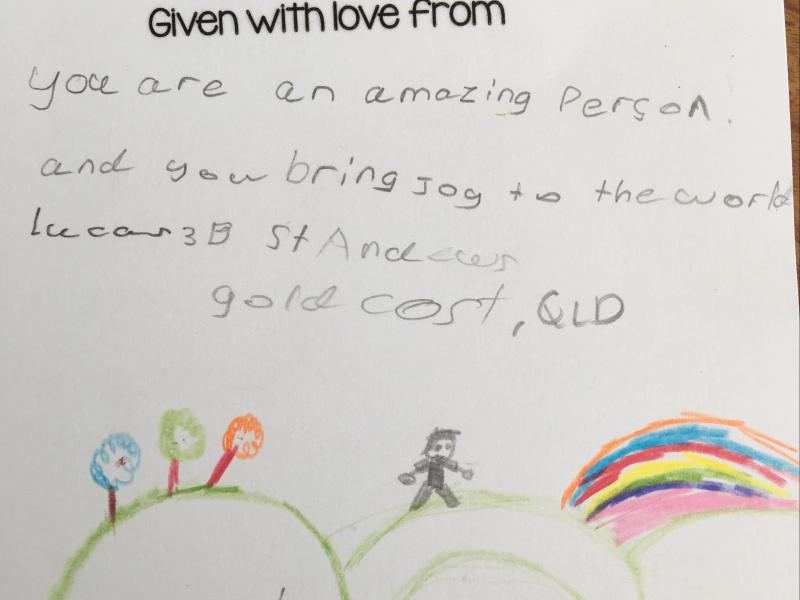 Given with love from
you are an amazing Person.
and you bring Joy to the world
Lucas 3B St Andrews
gold cost, QLD